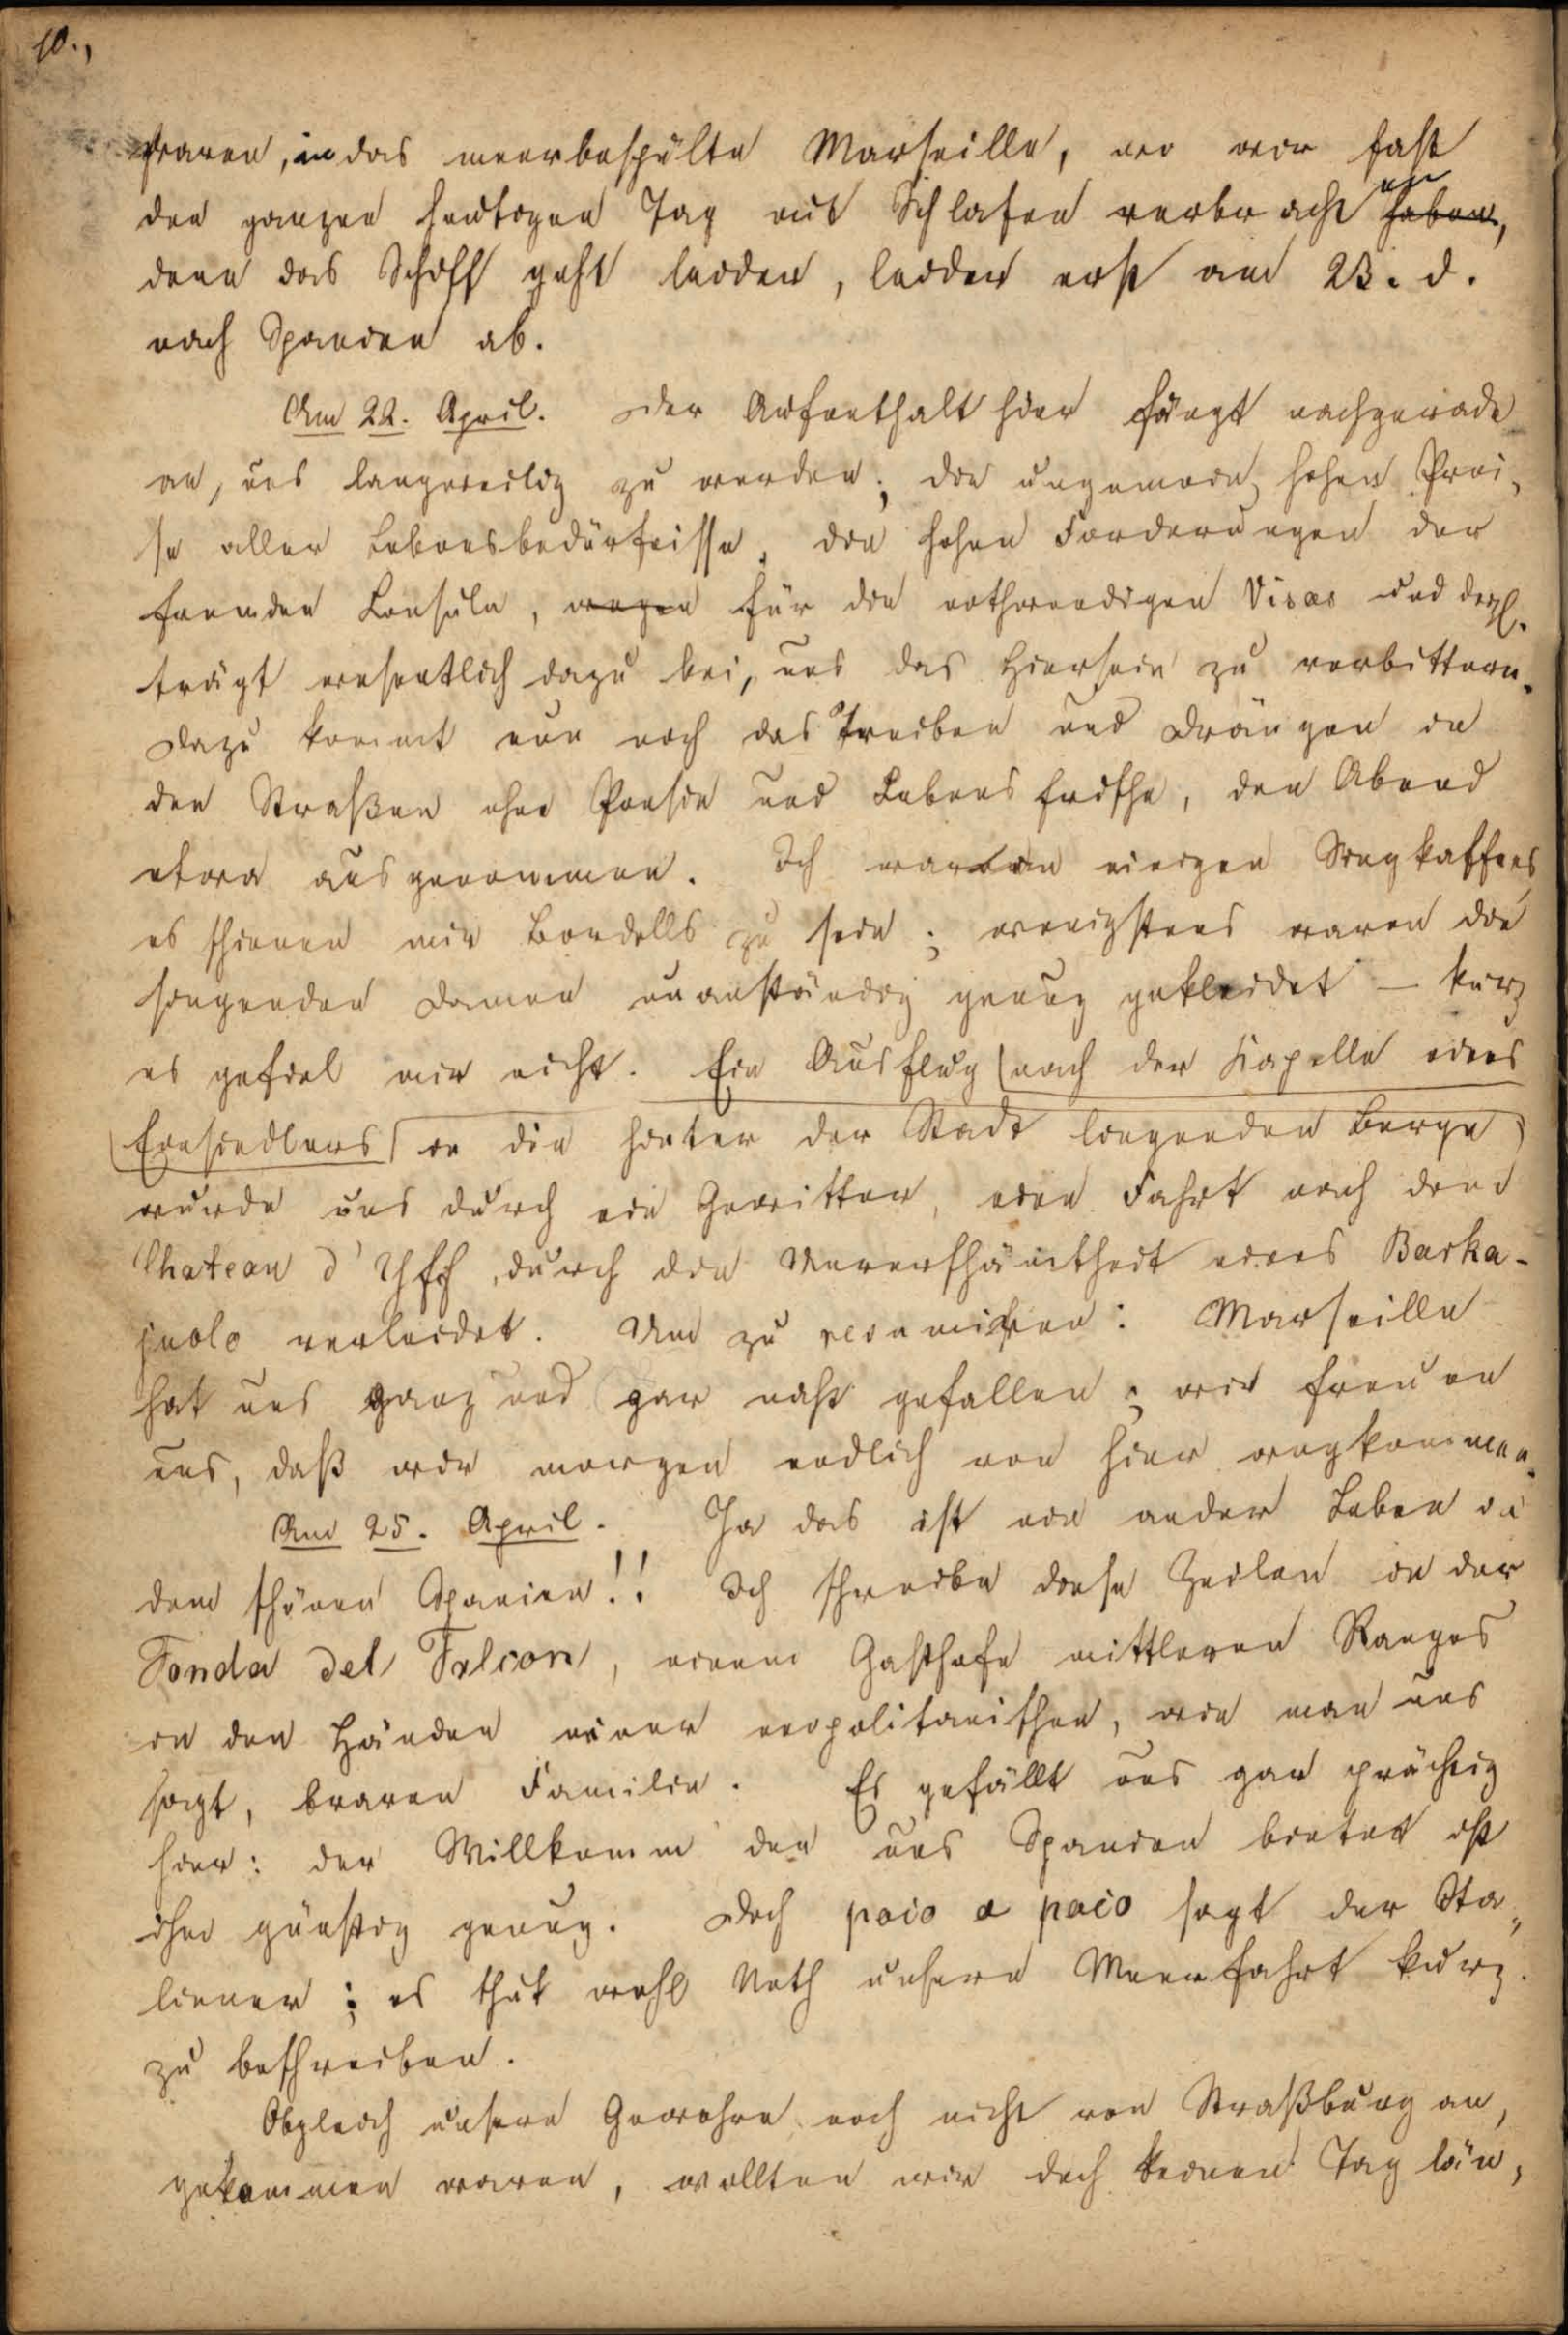 10.,
waren, in das meerbespülte Marseille, wo wir fast
den ganzen heutigen Tag mit Schlafen verbracht haben,
denn das Schiff geht leider, leider erst am 23. d.
nach Spanien ab.
Am 22. April. Der Aufenthalt hier fängt nachgerade
an, uns langweilig zu werden; die ungemein hohen Prei-
se aller Lebensbedürfnisse, die hohen Forderungen der
fremden Consuln, wegen für die nothwendigen Visas und dergl.
trägt wesentlich dazu bei, uns das Hiersein zu verbittern.
Dazu kommt nun noch das Treiben und Drängen in
den Straßen ohne Poesie und Lebensfrische, den Abend
etwa ausgenommen. Ich war in einigen Singkaffees
es schienen mir Bordells zu sein; wenigstens waren die
singenden Damen unanständig genug gekleidet – kurz
es gefiel mir nicht. Ein Ausflug nach der Kapelle eines
Einsiedlers in die hinter der Stadt liegenden Berge
wurde uns durch ein Gewitter, eine Fahrt nach dem
Chateau d'Yff, durch die Unverschämtheit eines Barka-
juolo verleidet. Um zu resumiren: Marseille
hat uns ganz und gar nicht gefallen; wir freuen
uns, daß wir morgen endlich von hier wegkommen.
Am 25. April. Ja das ist ein ander Leben in
dem schönen Spanien!! Ich schreibe diese Zeilen in der
Fonda del Falcon, einem Gasthofe mittleren Ranges
in den Händen einer neapolitanischen, wie man uns
sagt, braven Familie. Es gefällt uns gar prächtig
hier: der Willkomm den uns Spanien bietet ist
ihm günstig genug. Doch poco a poco sagt der Ita-
liener; es thut wohl Noth unsere Meerfahrt kurz
zu beschreiben.
Obgleich unsere Gewehre noch nicht von Straßburg an-
gekommen waren, wollten wir doch keinen Tag län-